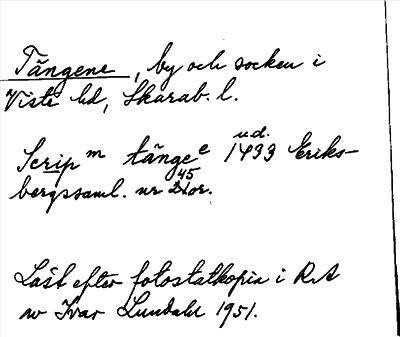 Tängene, by och socken i
Viste hd, Skarab. l.
Scrip m tänge e u.d. 1493 Eriks-
bergssaml. nr 45 or.
Läst efter fotostatkopia i RA
av Ivar Lundahl 1951.